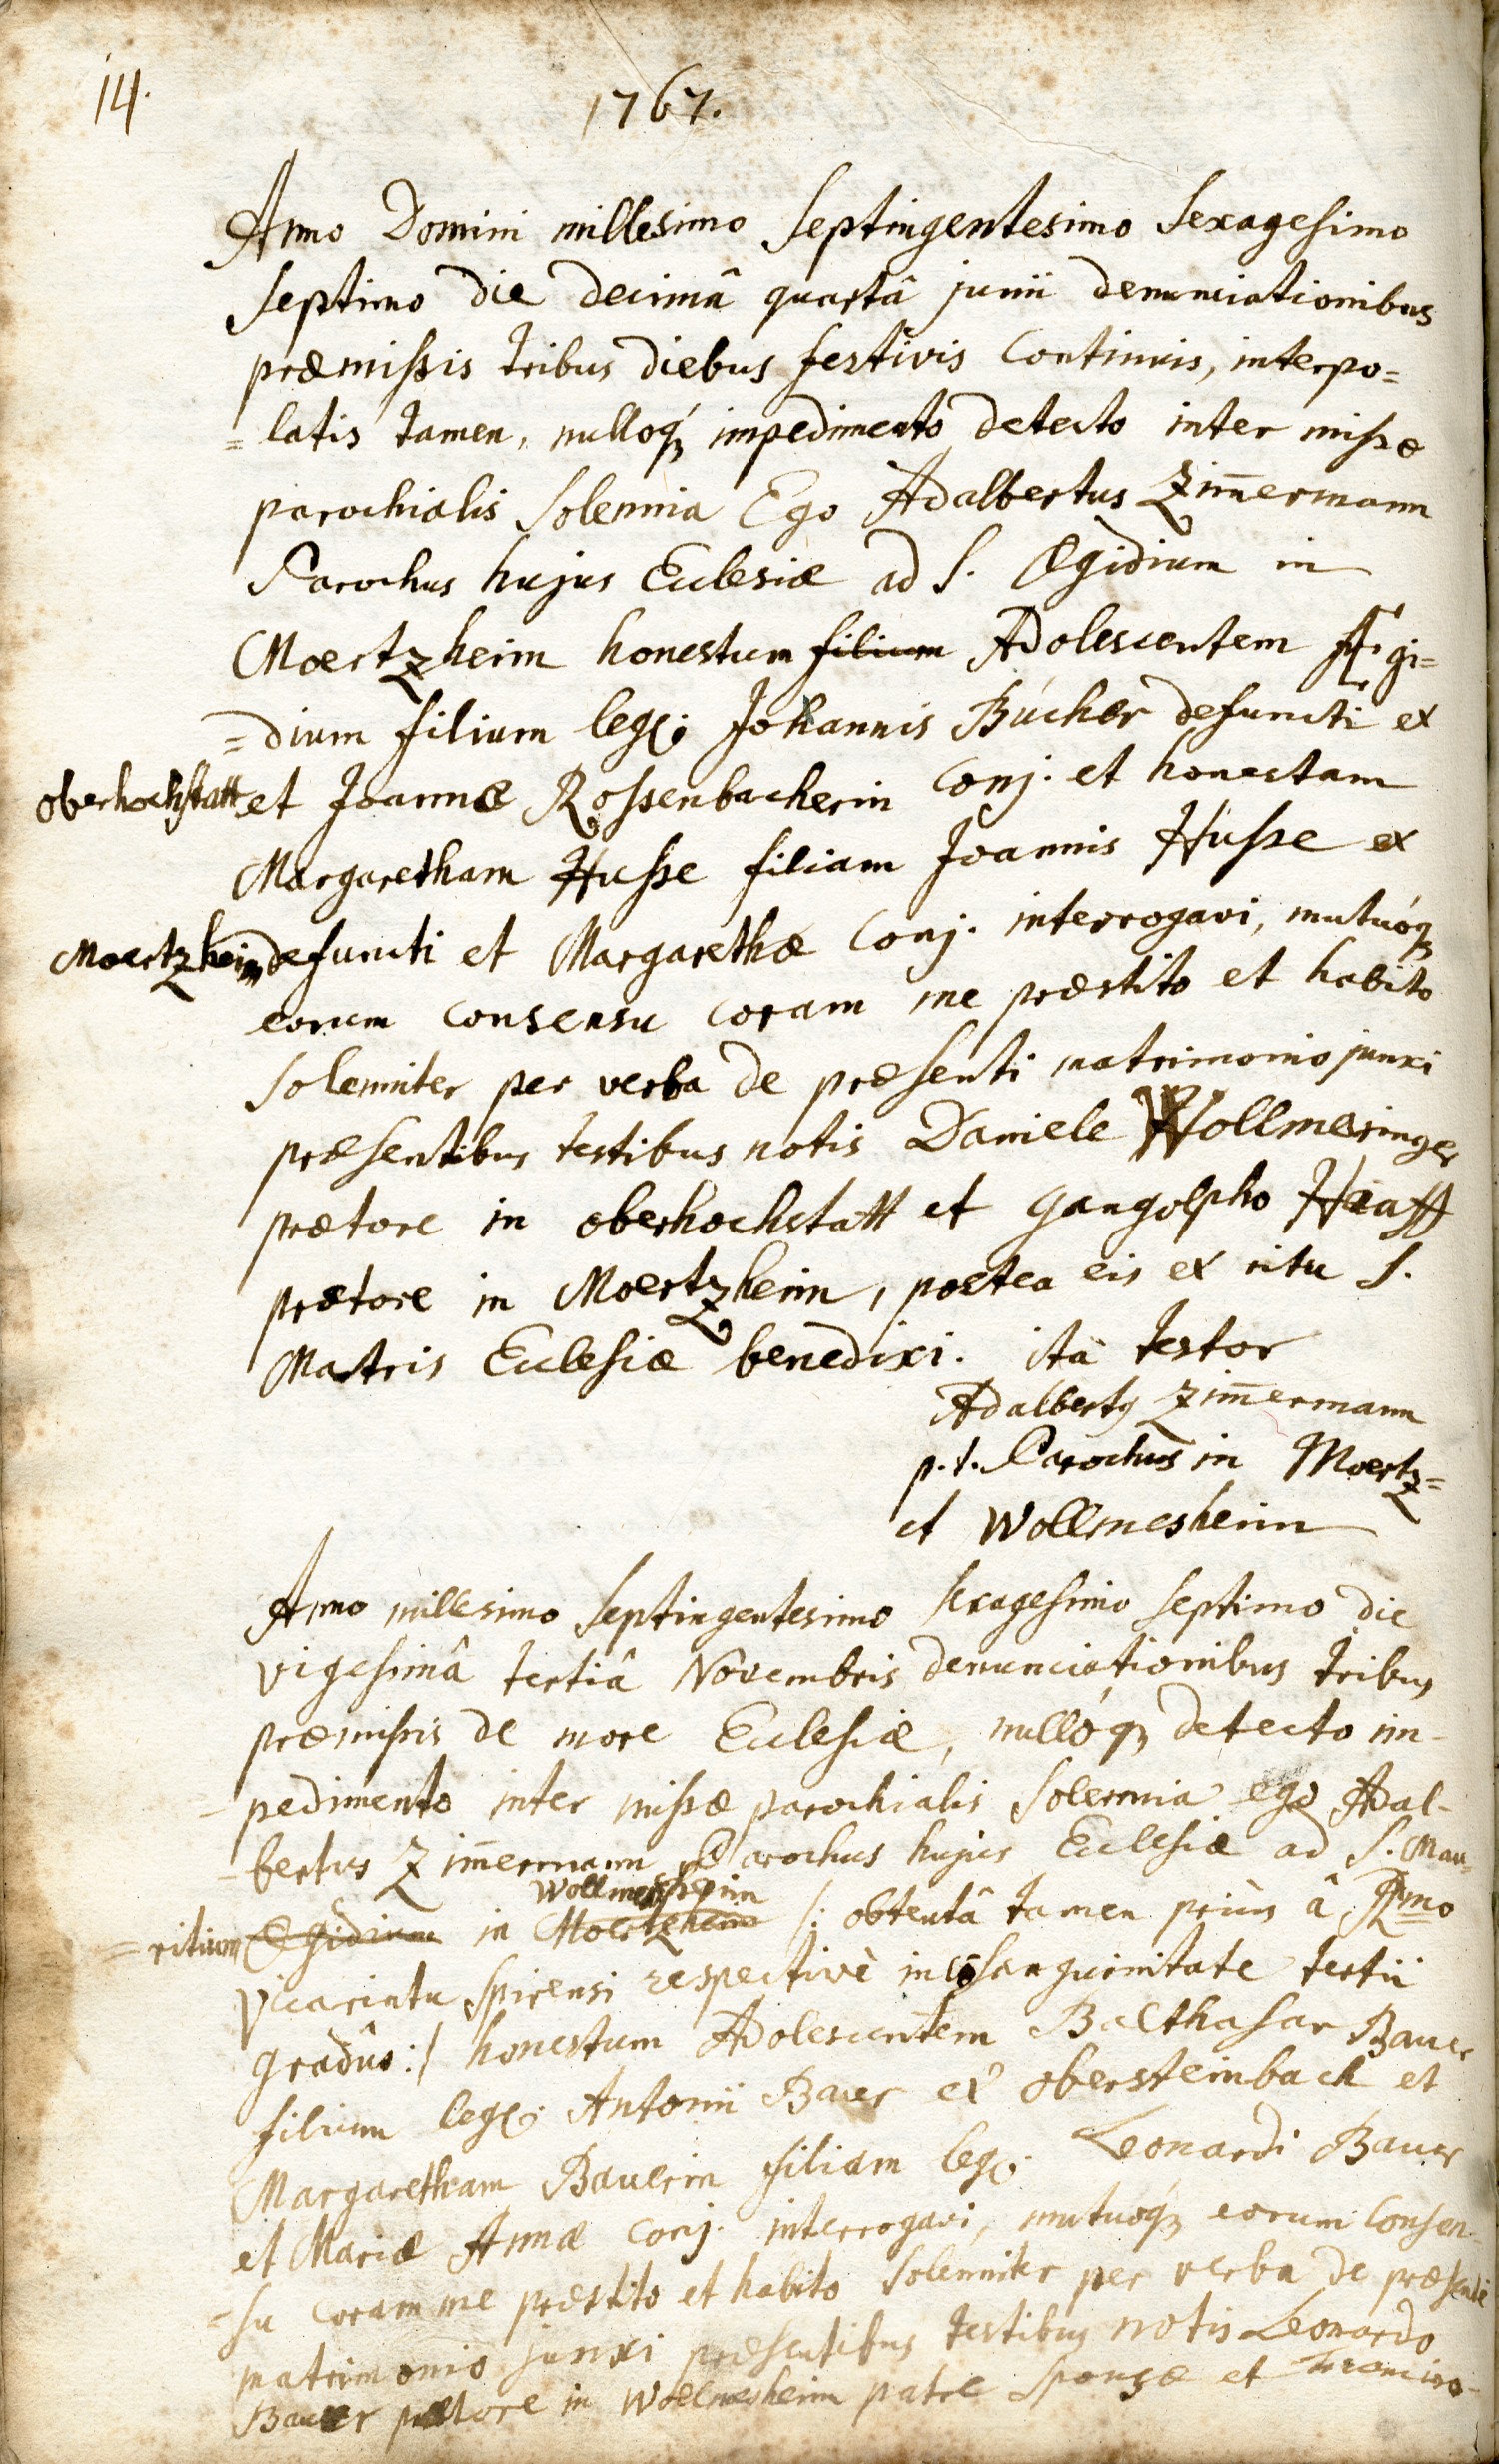 14.
1767.
Anno Domini millesimo septingentesimo sexagesimo
septimo die decimâ quartâ junii denunciationibus
præmissis tribus diebus festivis continuis, interpo=
=latis tamen, nulloq3 impedimento detecto inter missæ
parochialis solemnia Ego Adalbertus Zim̅ermann
Parochus hujus Ecclesiæ ad S. Ægidium in
Moertzheim honestum filium Adolescentem Ægi=
=dium filium leg: Johannis Búcher defuncti ex
oberhochstatt et Joannæ Rossenbacherin Conj. et honestam
Margaretham Husse filiam Joannis Husse ex
Moertzheim defuncti et Margarethæ Conj. interrogavi, mutuóq3
eorum consensu coram me præstito et habito
solemniter per verba de præsenti matrimonio junxi
præsentibus testibus notis Daniele Wollmeringer
prætore in oberhochstatt et Gangolpho Haaff
prætore in Moertzheim, postea eis ex ritu S.
Matris Ecclesiæ benedixi. ita testor
Adalbertq Zim̅ermann
p.t. Parochus in Moertz=
et Wollmesheim
Anno millesimo septingentesimo sexagesimo septimo die
vigesimâ tertiâ Novembris denunciationibus tribus
præmissis de more Ecclesiæ, nullóq3 detecto im-
-pedimento inter missæ parochialis solemnia ego Adal-
-bertus Zim̅ermann Parochus hujus Ecclesiæ ad S. Mau=
Wollmesheim
=ritium Ægidium in Moertzheim /: obtentâ tamen priùs â Rmo
Vicariatu Spirensi respectivè in cōsanguinitate tertii
gradûs :/ honestum Adolescentem Balthasar Bauer
filium leg: Antonii Bauer ex obersteinbach et
Margaretham Bauerin filiam leg: Leonardi Bauer
et Mariæ Annæ Conj. interrogavi, mutuoq3 eorum Consen-
=su coram me præstito et habito solemniter per verba de præsenti
matrimonio junxi præsentibus testibus notis Leonardo
Bauer prætore in Wollmesheim patre sponsæ et Francisco-